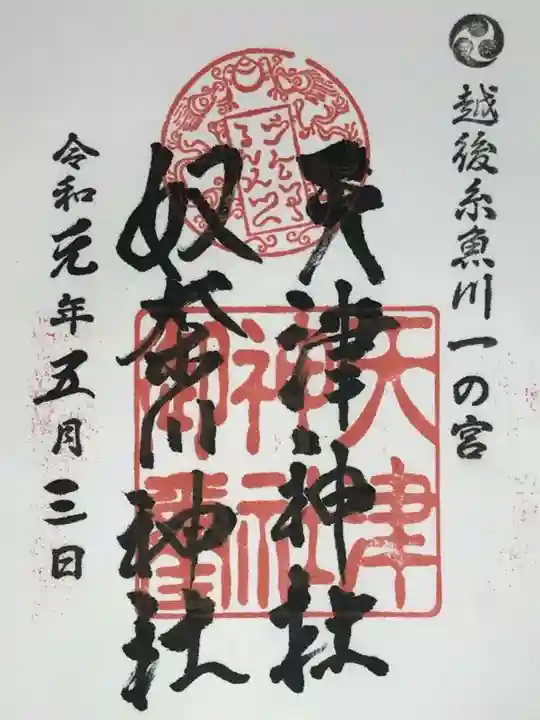 越後糸魚川一の宮
天津神社
奴奈川神社
令和元年五月三日
天津
神社